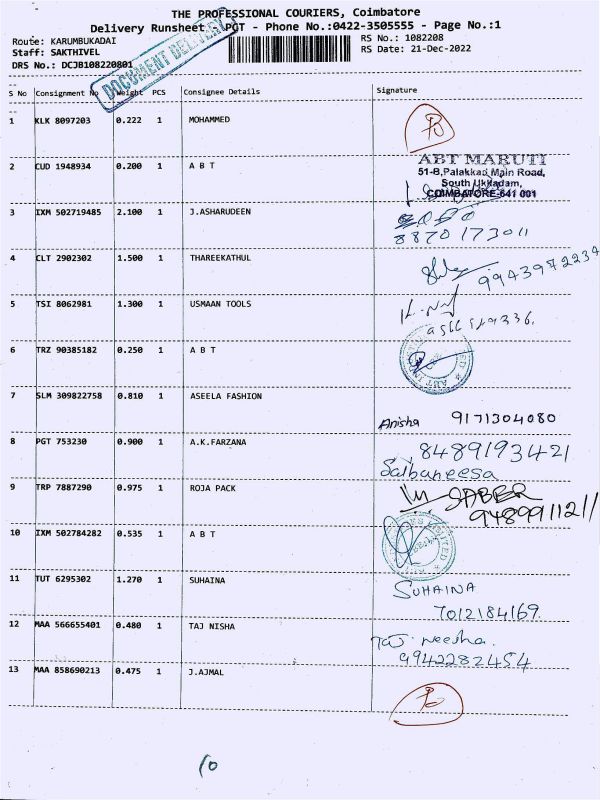 THE PROFESSIONAL COURIERS, Coimbatore
Delivery Runsheet - PGT - Phone No.:0422-3505555 - Page No.:1
Route: KARUMBUKADAI
RS No.: 1082208
Staff: SAKTHIVEL
RS Date: 21-Dec-2022
DRS No.: DCJB108220801
DOCUMENT DELIVERY
S No Consignment No Weight PCS Consignee Details Signature
1 KLK 8097203 0.222 1 MOHAMMED
2 CUD 1948934 0.200 1 A B T
ABT MARUTI
51-B,Palakkad Main Road,
South Ukkadam,
COIMBATORE-641 001
3 IXM 502719485 2.100 1 J.ASHARUDEEN
8870173011
4 CLT 2902302 1.500 1 THAREEKATHUL
9943972234
5 TSI 8062981 1.300 1 USMAAN TOOLS
6 TRZ 90385182 0.250 1 A B T
7 SLM 309822758 0.810 1 ASEELA FASHION
Anisha 9171304080
8 PGT 753230 0.900 1 A.K.FARZANA
8489193421
Salbaneesa
9 TRP 7887290 0.975 1 ROJA PACK
SABER
9489911211
10 IXM 502784282 0.535 1 A B T
11 TUT 6295302 1.270 1 SUHAINA
SUHAINA
7012184169
12 MAA 566655401 0.480 1 TAJ NISHA
Taj neesha.
9942282454
13 MAA 858690213 0.475 1 J.AJMAL
10